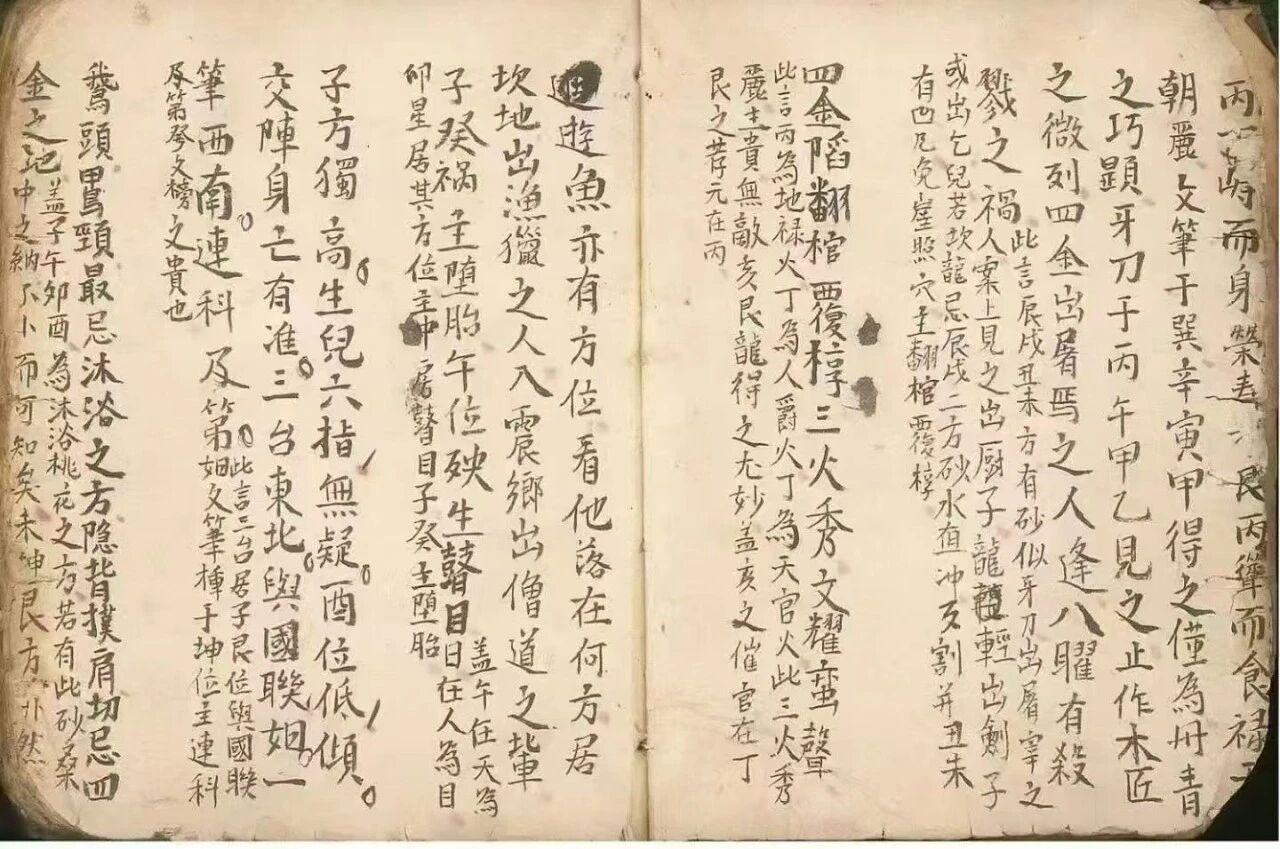 丙 峙而身榮壽 艮丙聳而食祿
朝麗文筆于巽辛寅甲得之僅為丹青
之巧顕牙刀于丙午甲乙見之止作木匠
之微列四金出屠焉之人逢八曜有殺
戮之禍此言辰戌丑未方有砂似牙刀出屠宰之
人案上見之出厨子龍輕出劊子
或出乞兒若坎龍忌辰戌二方砂水直冲反割并丑未
有凹凡免崖照穴主翻棺覆椁
四金陷翻棺覆椁三火秀文耀蛮聲
此言丙為地禄火丁為人爵火丁為天官火此三火秀
麗主貴無敵亥艮龍得之尤妙盖亥之催官在丁
艮之荐元在丙
遊魚亦有方位看他落在何方居
坎地出漁獵之人入震鄉出僧道之輩
子癸禍主堕胎午位殃生瞽目盖午在天為
日在人為目
卯星居其方位主中房瞽目子癸主堕胎
子方獨高生兒六指無疑酉位低傾
交陣身亡有准三台東北與國聯姻一
筆西南連科及第此言三台居子艮位與國聯
姻文筆種于坤位主連科
及第癸文榜之貴也
鵞頭鴨頸最忌沐浴之方隐背撲肩切忌四
金之地盖子午夘酉為沐浴桃花之方若有此砂桑
中之約不卜而可知矣未坤艮方 然